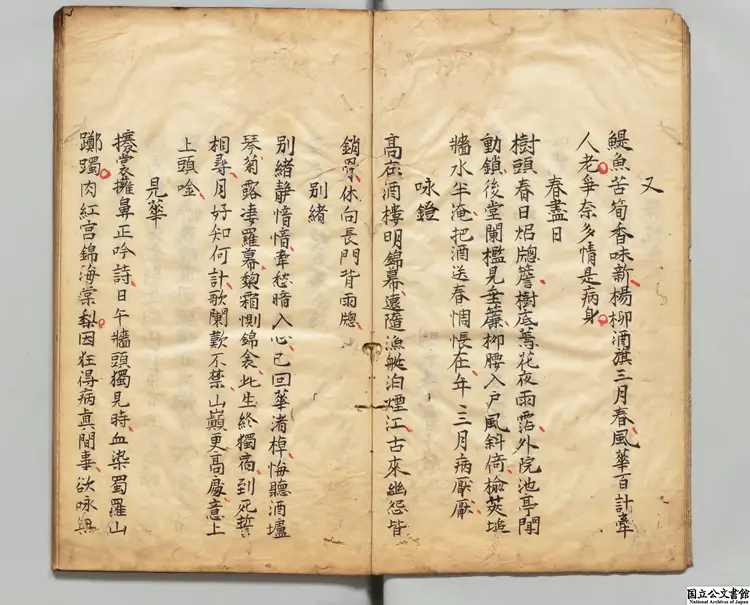 又
鯷魚苦筍香味新楊柳酒旗三月春風華百計牽
人老爭奈多情是病身
春盡日
樹頭春日炤牕簷樹底蔫花夜雨霑外院池亭聞
動鎖後堂闌檻見垂簾柳腰入戶風斜倚榆莢堆
牆水半淹把酒送春惆悵在年三月病厭厭
咏鐙
高在酒樓明錦幕遠隨漁艇泊煙江古來幽怨皆
銷䰟休向長門背雨牕
別緒
別緒靜愔愔牽愁暗入心已回華渚棹悔聽酒壚
琴菊露淒羅幕梨霜惻錦衾此生終獨宿到死誓
相尋月好知何計歌闌歎不禁山巔更高處意上
上頭唫
見華
攓裳擁鼻正吟詩日午牆頭獨見時血染蜀羅山
躑躅肉紅宮錦海棠梨因狂得病真閒事欲咏無
国立公文書館
National Archives of Japan